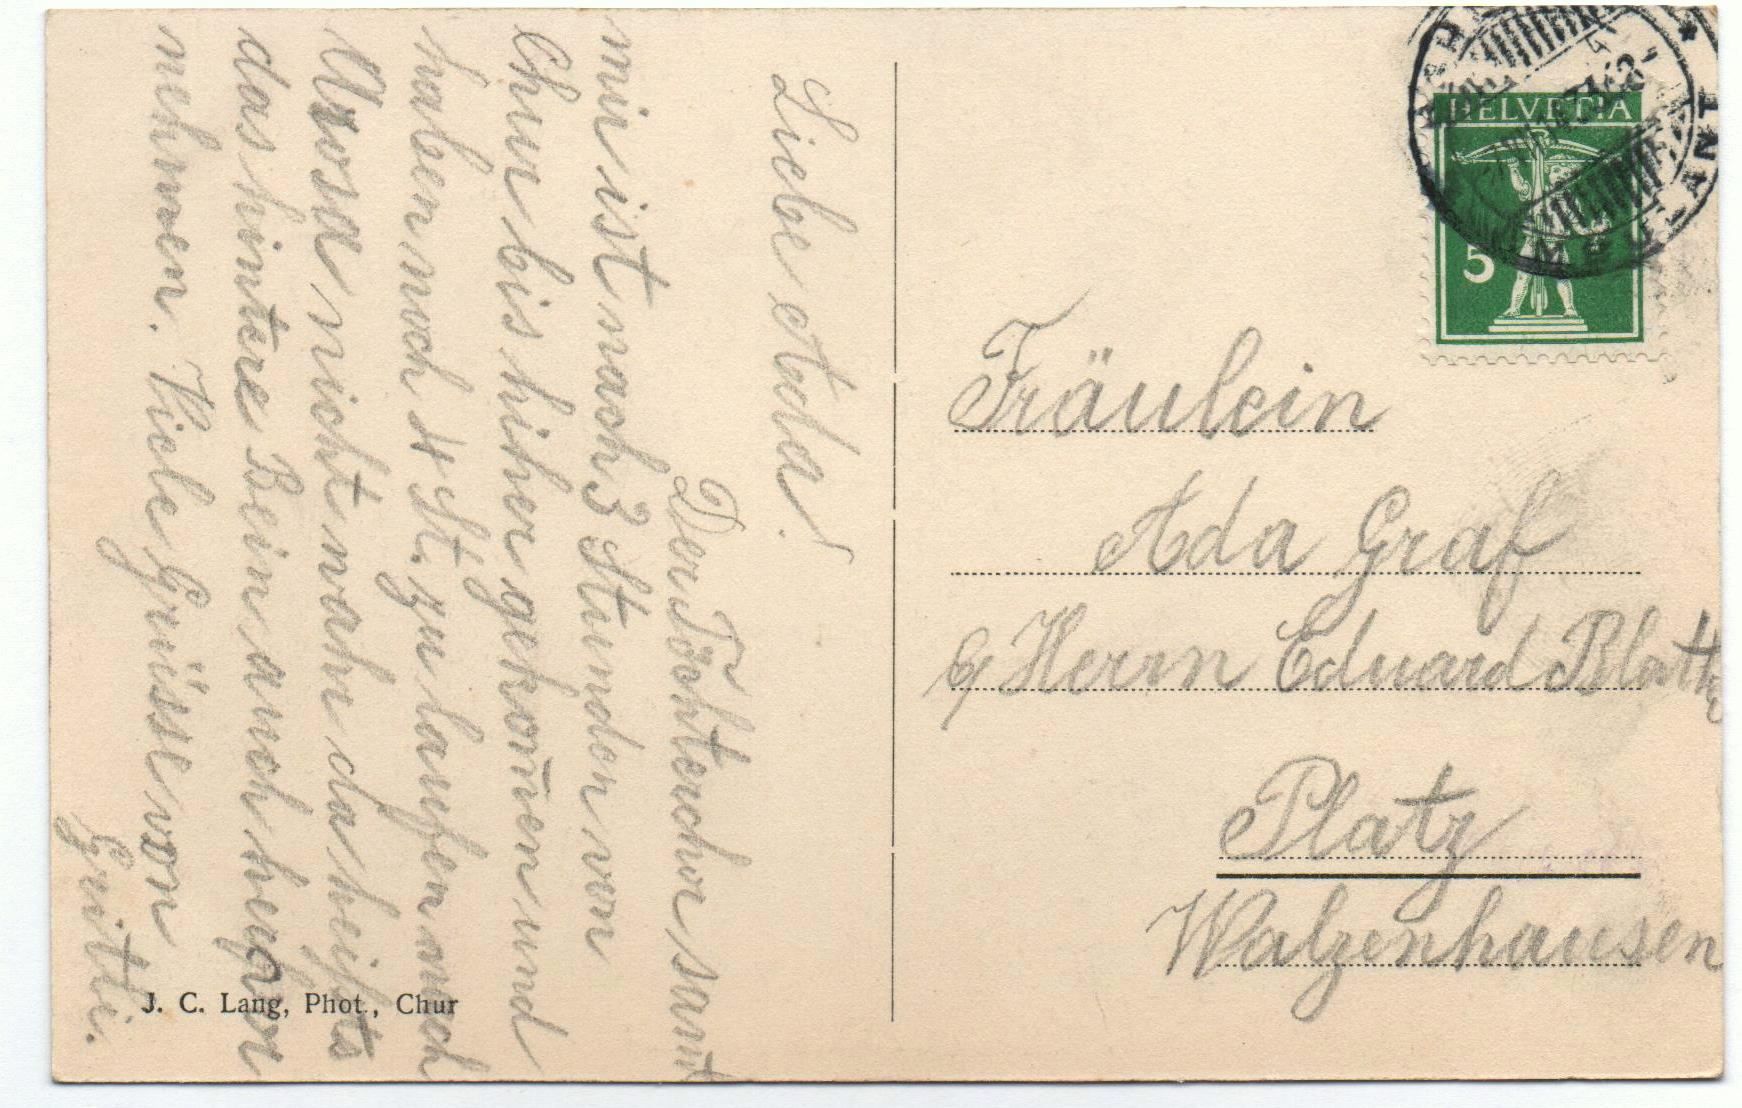 Liebe Ada!
Der Töchterchor samt
mir ist nach 3 Stunden von
Chur bis hiher gekom̅en und
haben noch 4 St. zu laufen nach
Arosa nicht wahr da heißts
das hintere Bein auch hervor
nehmen. Viele Grüsse von
Gritti.
J. C. Lang, Phot., Chur
HELVETIA
5
Fräulein
Ada Graf
b/ Herrn Eduard
Platz
Walzenhausen